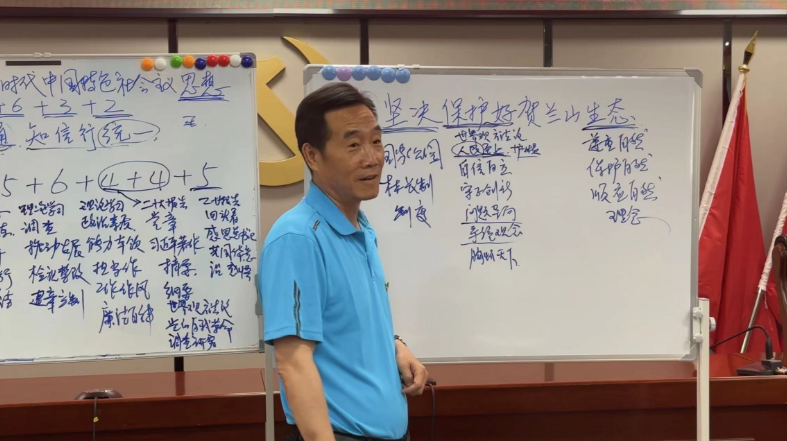 时代中国特色社会主义思想
+6+3+2
知信行统一
5+6+4+4+5
理论学习
调查
检视整改
建章立制
理论学习
政治素质
能力本领
担当作
工作作风
廉洁自律
二十大报告
党章
习近平著作
摘录
纲要
世界观方法论
党的自我革命
调查研究
坚决保护好贺兰山生态
国家公园
林长制
制度
世界观方法论
人民至上
自信自立
守正创新
问题导向
系统观念
胸怀天下
尊重自然
保护自然
顺应自然
理念